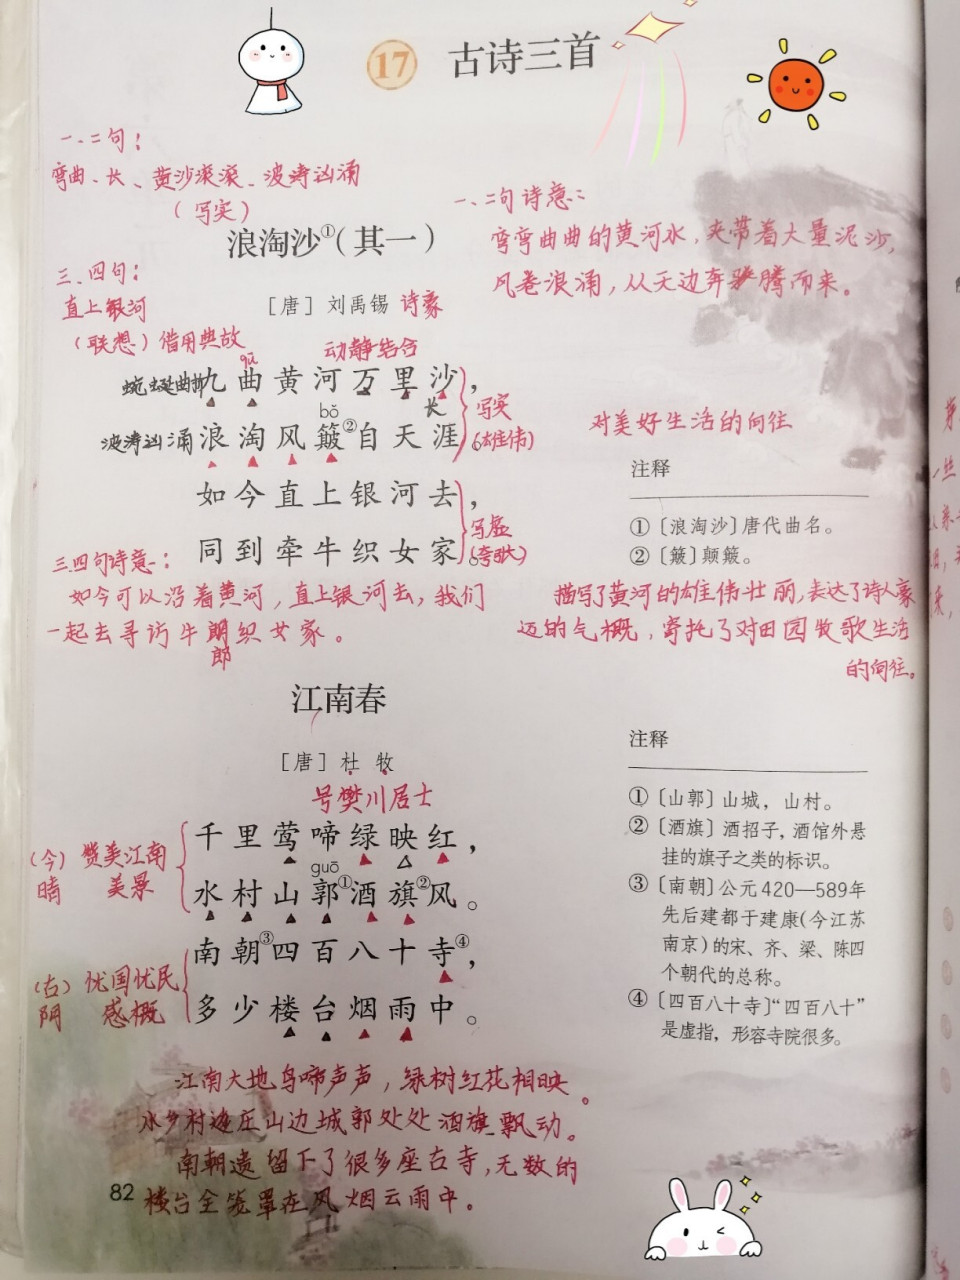 17 古诗三首
一、二句：
弯曲、长、黄沙滚滚、波涛汹涌
（写实）
一、二句诗意：
弯弯曲曲的黄河水，夹带着大量泥沙，
风卷浪涌，从天边奔腾而来。
浪淘沙①（其一）
三、四句：
直上银河
（联想）借用典故
［唐］刘禹锡 诗豪
动静结合
qū
蜿蜒曲折 九曲黄河万里沙，
bǒ 长
波涛汹涌 浪淘风簸②自天涯。
写实
（雄伟）
如今直上银河去，
同到牵牛织女家。
写虚
（夸张）
对美好生活的向往
注释
①〔浪淘沙〕唐代曲名。
②〔簸〕颠簸。
三、四句诗意：
如今可以沿着黄河，直上银河去，我们
一起去寻访牛郎织女家。
郎
描写了黄河的雄伟壮丽，表达了诗人豪
迈的气概，寄托了对田园牧歌生活
的向往。
江南春
［唐］杜 牧
号樊川居士
（今） 赞美江南
晴 美景
千里莺啼绿映红，
guō
水村山郭①酒旗②风。
（古） 忧国忧民
阴 感概
南朝③四百八十寺④，
多少楼台烟雨中。
注释
①〔山郭〕山城，山村。
②〔酒旗〕酒招子，酒馆外悬
挂的旗子之类的标识。
③〔南朝〕公元420—589年
先后建都于建康（今江苏
南京）的宋、齐、梁、陈四
个朝代的总称。
④〔四百八十寺〕“四百八十”
是虚指，形容寺院很多。
江南大地鸟啼声声，绿树红花相映。
水乡村边庄山边城郭处处酒旗飘动。
南朝遗留下了很多座古寺，无数的
楼台全笼罩在风烟云雨中。
82